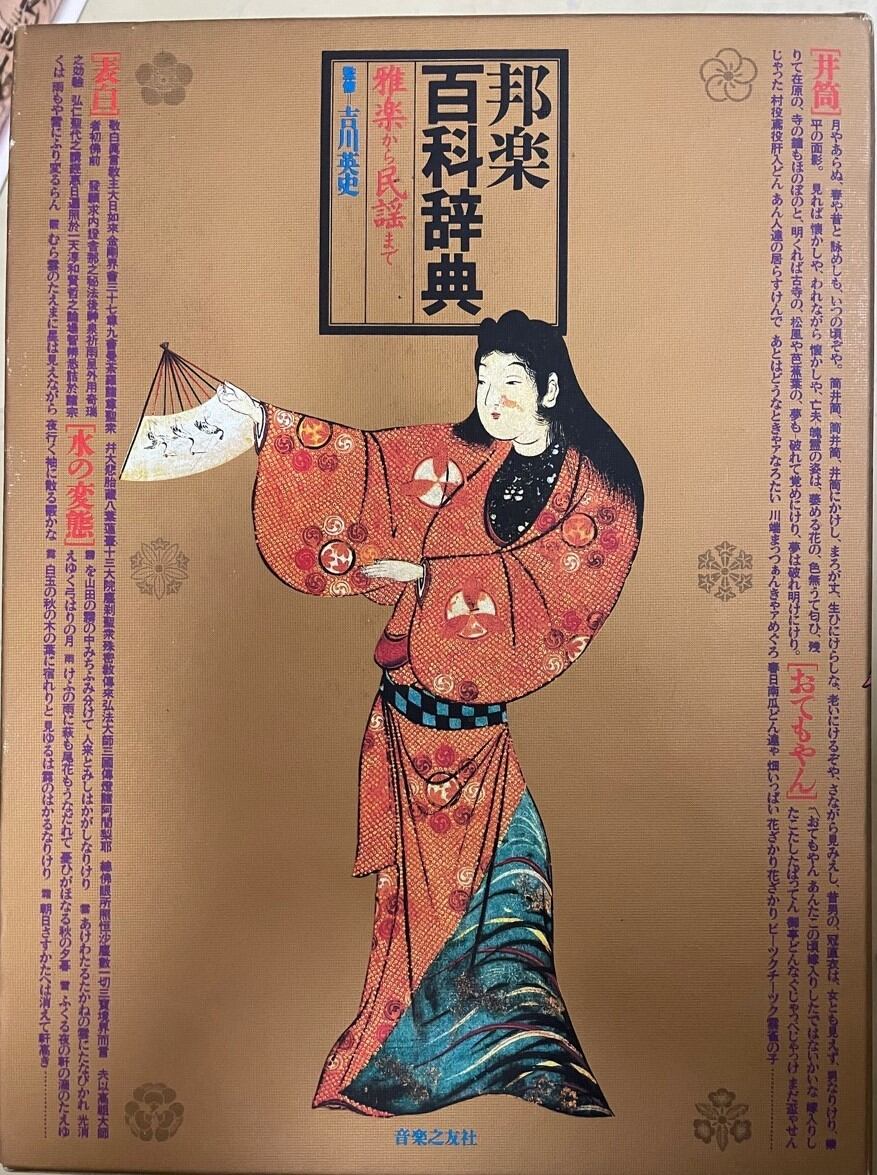 邦楽
百科辞典
雅楽から民謡まで
監修 吉川英史
[井筒]
月やあらぬ、春や昔と 詠めしも、いつの頃ぞや。 筒井筒、筒井筒、井筒にかけし、まろが丈、生ひにけらしな、老いにけるぞや、さながら見みえし、昔男の、冠直衣は、女とも見えず、男なりけり、業
平の面影。 見れば 懐かしや、われながら 懐かしや、亡夫 魄霊の姿は、萎める花の、色無うて匂ひ、残
りて在原の、寺の鐘もほのぼのと、明くれば古寺の、松風や芭蕉葉の、夢も 破れて覚めにけり、夢は破れ明けにけり。
[おてもやん]
〽おてもやん あんたこの頃嫁入りしたではないかいな 嫁入りし
たこたしたばってん 御亭どんなぐじゃっぺじゃっけ まだ盃やせん
じゃった 村役鳶役肝入どん あん人達の居らすけんで あとはどうなときゃアなろたい 川端まっつぁんきゃアめぐろ 春日南瓜どん達ゃ 畑いっぱい 花ざかり花ざかり ピーツクチーツク雲雀の子…………
[表白]
敬白真言教主大日如来金剛界会三十七尊九会曼荼羅諸尊聖衆 并大悲胎蔵八葉蓮臺十三大院塵刹聖衆殊密教傳來弘法大師三國傳燈諸阿闍梨耶 総佛眼所照恒沙塵數一切三寶境界而言 夫以高祖大師
者初佛前 發願求内證舎那之秘法後神泉祈雨呈外用奇瑞
之効驗 弘仁聖代之講經
[水の変態]
霧 を山田の霧の中みちふみ分けて 人来とみしはかがしなりけり 雲 あけわたるたかねの雲にたなびかれ 光消
えゆく弓はりの月 雨 けふの雨に萩も尾花もうなだれて 憂ひがほなる秋の夕暮 雪 ふくる夜の軒の滴のたえゆ
くは 雨もや雪にふり変るらん 霰 むら雲のたえまに星は見えながら 夜行く袖に散る霰かな 露 白玉の秋の木の葉に宿れりと 見ゆるは露のはかるなりけり 霜 朝日さすかたへは消えて軒高き…………
音楽之友社